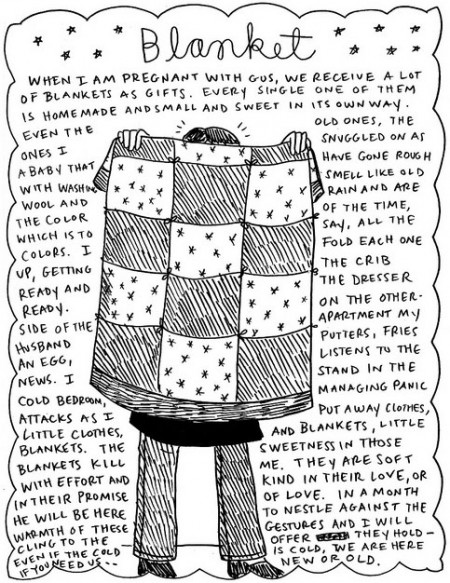 Blanket
WHEN I AM PREGNANT WITH GUS, WE RECEIVE A LOT
OF BLANKETS AS GIFTS. EVERY SINGLE ONE OF THEM
IS HOMEMADE AND SMALL AND SWEET IN ITS OWN WAY.
EVEN THE OLD ONES, THE
ONES I SNUGGLED ON AS
A BABY THAT HAVE GONE ROUGH
WITH WASHIN SMELL LIKE OLD
WOOL AND RAIN AND ARE
THE COLOR OF THE TIME,
WHICH IS TO SAY, ALL THE
COLORS. I FOLD EACH ONE
UP, GETTING THE CRIB
READY AND THE DRESSER
READY. ON THE OTHER-
SIDE OF THE APARTMENT MY
HUSBAND PUTTERS, FRIES
AN EGG, LISTENS TO THE
NEWS. I STAND IN THE
COLD BEDROOM, MANAGING PANIC
ATTACKS AS I PUT AWAY CLOTHES,
LITTLE CLOTHES, AND BLANKETS, LITTLE
BLANKETS. THE SWEETNESS IN THOSE
BLANKETS KILL ME. THEY ARE SOFT
WITH EFFORT AND KIND IN THEIR LOVE, OR
IN THEIR PROMISE OF LOVE. IN A MONTH
HE WILL BE HERE TO NESTLE AGAINST THE
WARMTH OF THESE GESTURES AND I WILL
CLING TO THE OFFER THEY HOLD—
EVEN IF THE COLD IS COLD, WE ARE HERE
IF YOU NEED US -- NEW OR OLD.